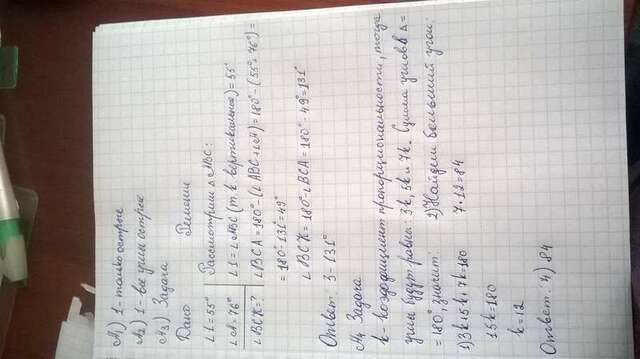 А1) 1 - только острые
А2 1 - все углы острые
А3) Задача
Дано Решение
∠1 = 55° Рассмотрим △ABC:
∠A = 76° ∠1 = ∠ABC (т. к. вертикальные) = 55°
∠BCK = ? ∠BCA = 180° - (∠ABC + ∠A) = 180° - (55° + 76°) =
= 180° - 131° = 49°
∠BCK = 180° - ∠BCA = 180° - 49° = 131°
Ответ: 3 - 131°
А4 Задача
k - коэффициент пропорциональности, тогда
углы будут равны 3k, 5k и 7k. Сумма углов в △ =
= 180°, значит:
1) 3k+5k+7k=180 2) Найдем больший угол:
15k=180 7·12=84
k=12
Ответ: 4) 84